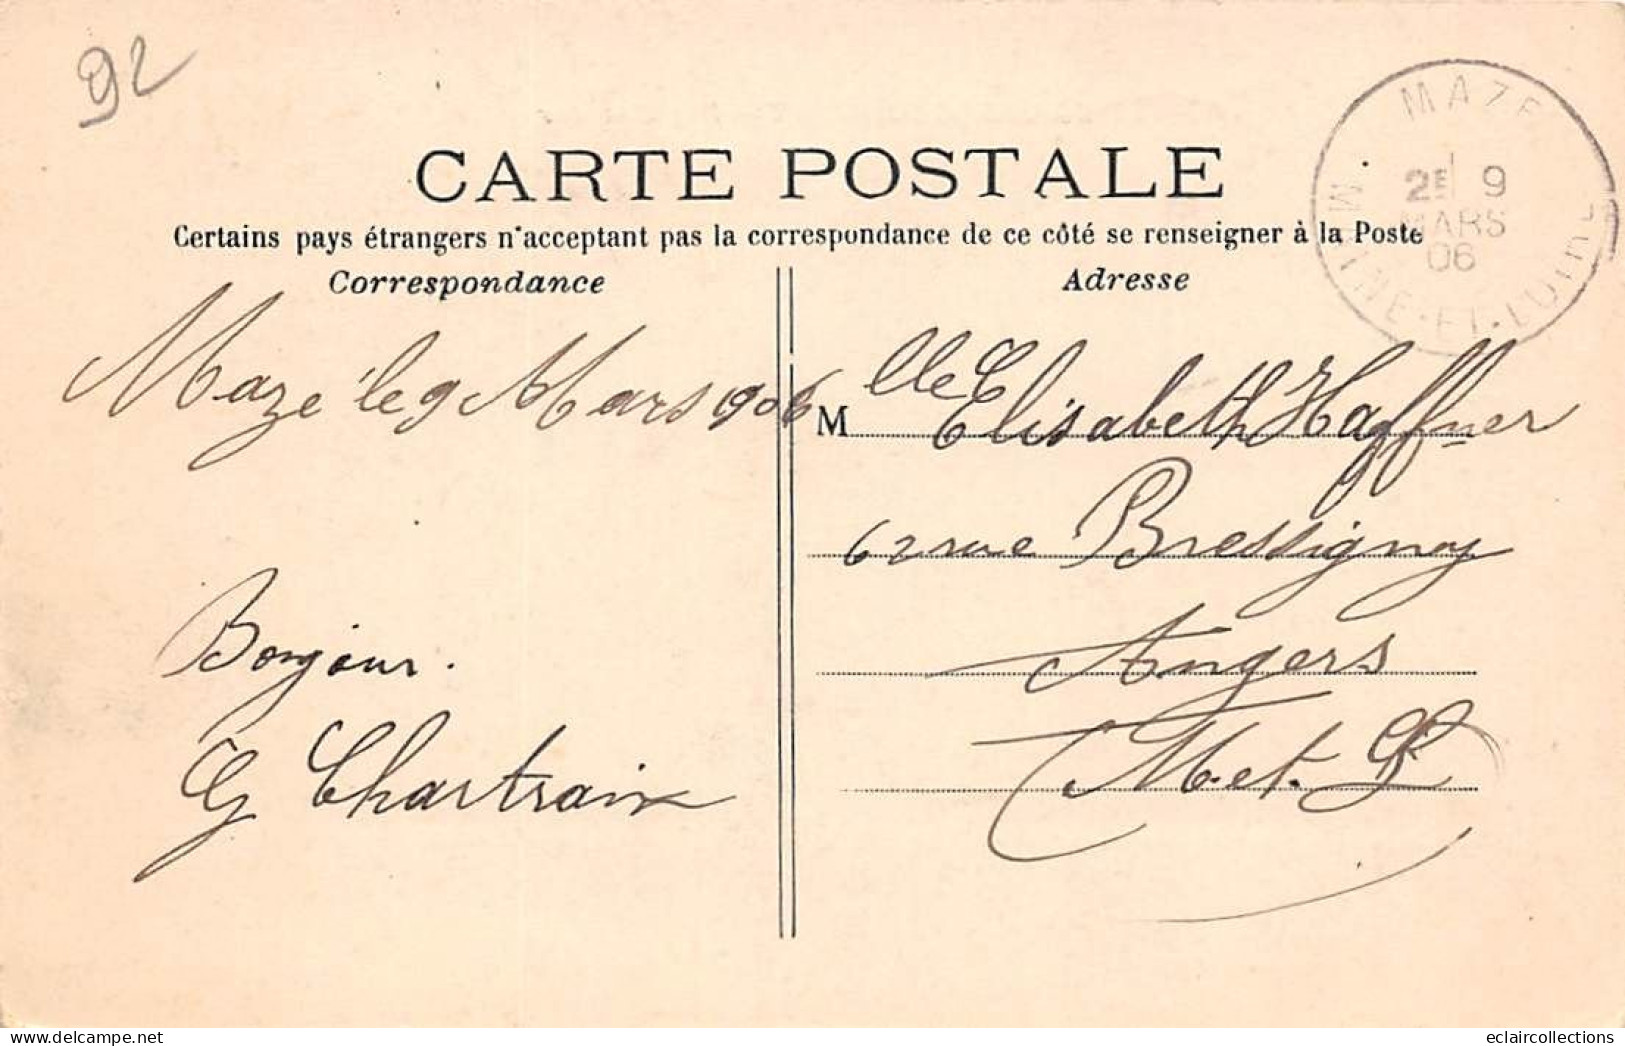 92
MAZE
2E 9
MARS
06
MAINE-ET-LOIRE
CARTE POSTALE
Certains pays étrangers n'acceptant pas la correspondance de ce côté se renseigner à la Poste
Correspondance
Mazé le 9 Mars 1906
Bonjour.
G Chartrain
Adresse
Mlle Elisabeth Haffner
62 rue Bressigny
Angers
M et L
www.delcampe.net
eclaircollections